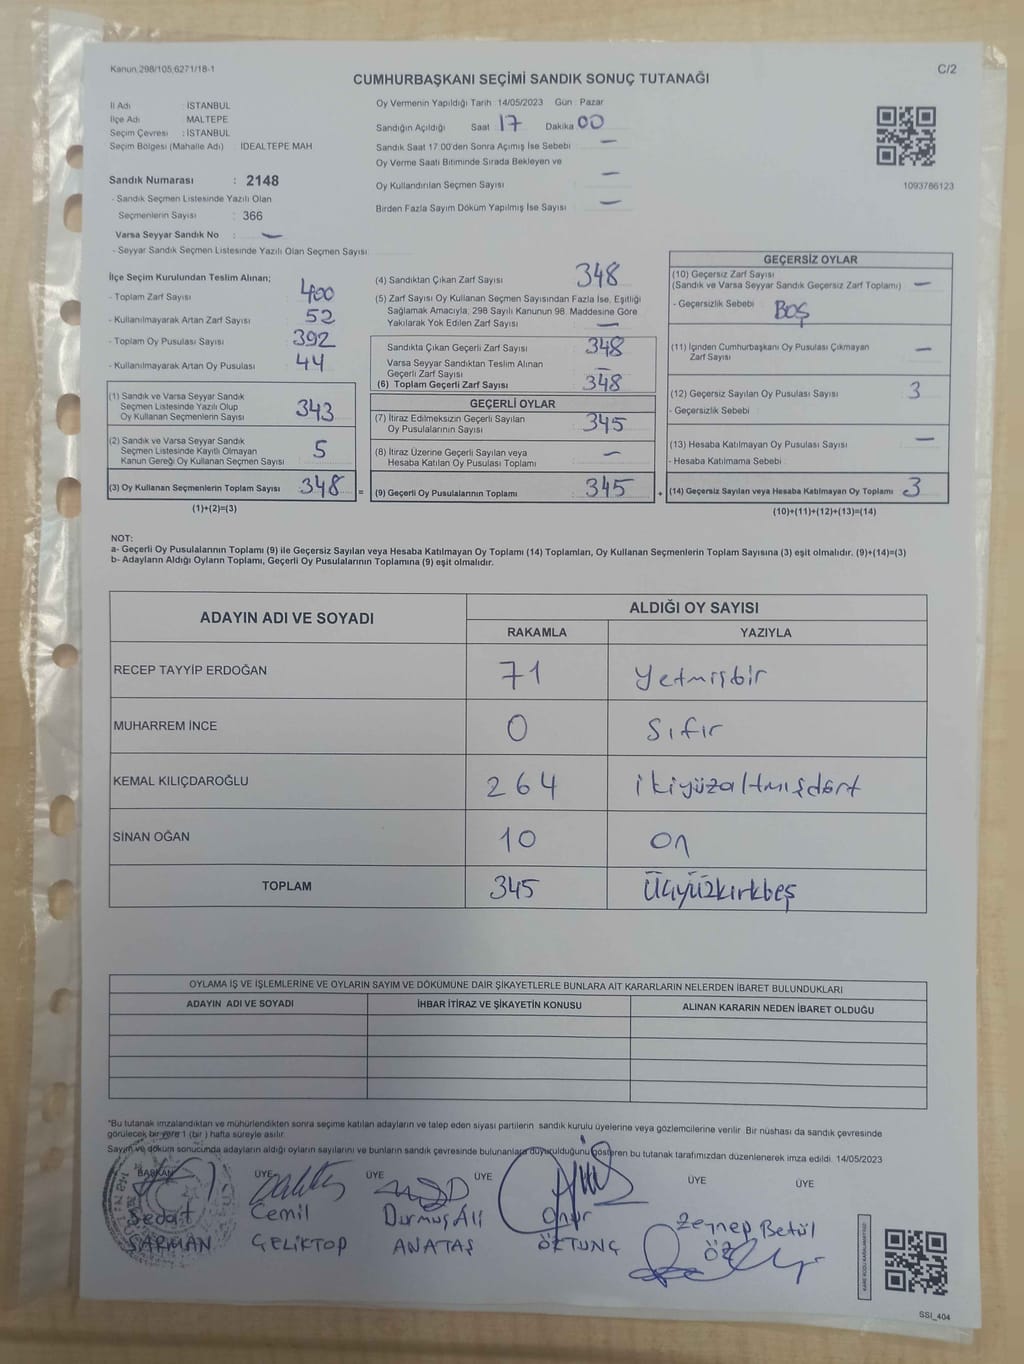 Kanun 298/105,6271/18-1
C/2
CUMHURBAŞKANI SEÇİMİ SANDIK SONUÇ TUTANAĞI
İl Adı : İSTANBUL
İlçe Adı MALTEPE
Seçim Çevresi : İSTANBUL
Seçim Bölgesi (Mahalle Adı) IDEALTEPE MAH
Sandık Numarası : 2148
- Sandık Seçmen Listesinde Yazılı Olan
Seçmenlerin Sayısı : 366
Varsa Seyyar Sandık No : —
- Seyyar Sandık Seçmen Listesinde Yazılı Olan Seçmen Sayısı
Oy Vermenin Yapıldığı Tarih 14/05/2023 Gün : Pazar
Sandığın Açıldığı Saat 17 Dakika 00
Sandık Saat 17.00'den Sonra Açımış İse Sebebi —
Oy Verme Saati Bitiminde Sırada Bekleyen ve
Oy Kullandırılan Seçmen Sayısı —
Birden Fazla Sayım Döküm Yapılmış İse Sayısı —
1093786123
İlçe Seçim Kurulundan Teslim Alınan;
- Toplam Zarf Sayısı 400
- Kullanılmayarak Artan Zarf Sayısı 52
- Toplam Oy Pusulası Sayısı 392
- Kullanılmayarak Artan Oy Pusulası 44
(1) Sandık ve Varsa Seyyar Sandık
Seçmen Listesinde Yazılı Olup
Oy Kullanan Seçmenlerin Sayısı 343
(2) Sandık ve Varsa Seyyar Sandık
Seçmen Listesinde Kayıtlı Olmayan
Kanun Gereği Oy Kullanan Seçmen Sayısı 5
(3) Oy Kullanan Seçmenlerin Toplam Sayısı 348 =
(1)+(2)=(3)
(4) Sandıktan Çıkan Zarf Sayısı 348
(5) Zarf Sayısı Oy Kullanan Seçmen Sayısından Fazla İse, Eşitliği
Sağlamak Amacıyla, 298 Sayılı Kanunun 98. Maddesine Göre
Yakılarak Yok Edilen Zarf Sayısı —
Sandıkta Çıkan Geçerli Zarf Sayısı 348
Varsa Seyyar Sandıktan Teslim Alınan
Geçerli Zarf Sayısı —
(6) Toplam Geçerli Zarf Sayısı 348
GEÇERLİ OYLAR
(7) İtiraz Edilmeksizin Geçerli Sayılan
Oy Pusulalarının Sayısı 345
(8) İtiraz Üzerine Geçerli Sayılan veya
Hesaba Katılan Oy Pusulası Toplamı —
(9) Geçerli Oy Pusulalarının Toplamı 345 +
GEÇERSİZ OYLAR
(10) Geçersiz Zarf Sayısı
(Sandık ve Varsa Seyyar Sandık Geçersiz Zarf Toplamı) —
- Geçersizlik Sebebi BOŞ
(11) İçinden Cumhurbaşkanı Oy Pusulası Çıkmayan
Zarf Sayısı —
(12) Geçersiz Sayılan Oy Pusulası Sayısı 3
- Geçersizlik Sebebi
(13) Hesaba Katılmayan Oy Pusulası Sayısı —
- Hesaba Katılmama Sebebi
(14) Geçersiz Sayılan veya Hesaba Katılmayan Oy Toplamı 3
(10)+(11)+(12)+(13)=(14)
NOT:
a- Geçerli Oy Pusulalarının Toplamı (9) ile Geçersiz Sayılan veya Hesaba Katılmayan Oy Toplamı (14) Toplamları, Oy Kullanan Seçmenlerin Toplam Sayısına (3) eşit olmalıdır. (9)+(14)=(3)
b- Adayların Aldığı Oyların Toplamı, Geçerli Oy Pusulalarının Toplamına (9) eşit olmalıdır.
ADAYIN ADI VE SOYADI ALDIĞI OY SAYISI
RAKAMLA YAZIYLA
RECEP TAYYİP ERDOĞAN 71 Yetmişbir
MUHARREM İNCE 0 Sıfır
KEMAL KILIÇDAROĞLU 264 ikiyüzaltmışdört
SİNAN OĞAN 10 on
TOPLAM 345 Üçyüzkırkbeş
OYLAMA İŞ VE İŞLEMLERİNE VE OYLARIN SAYIM VE DÖKÜMÜNE DAİR ŞİKAYETLERLE BUNLARA AİT KARARLARIN NELERDEN İBARET BULUNDUKLARI
ADAYIN ADI VE SOYADI İHBAR İTİRAZ VE ŞİKAYETİN KONUSU ALINAN KARARIN NEDEN İBARET OLDUĞU
*Bu tutanak imzalandıktan ve mühürlendikten sonra seçime katılan adayların ve talep eden siyasi partilerin sandık kurulu üyelerine veya gözlemcilerine verilir. Bir nüshası da sandık çevresinde
görülecek bir yere 1 (bir) hafta süreyle asılır.
Sayım ve döküm sonucunda adayların aldığı oyların sayılarını ve bunların sandık çevresinde bulunanlara duyurulduğunu gösteren bu tutanak tarafımızdan düzenlenerek imza edildi. 14/05/2023
BAŞKAN ÜYE ÜYE ÜYE ÜYE ÜYE
Sedat Cemil Durmuş Ali Onur Zeynep Betül
SARMAN ÇELİKTOP ANATAŞ ÖKTUNÇ ÖZ
SSI_404